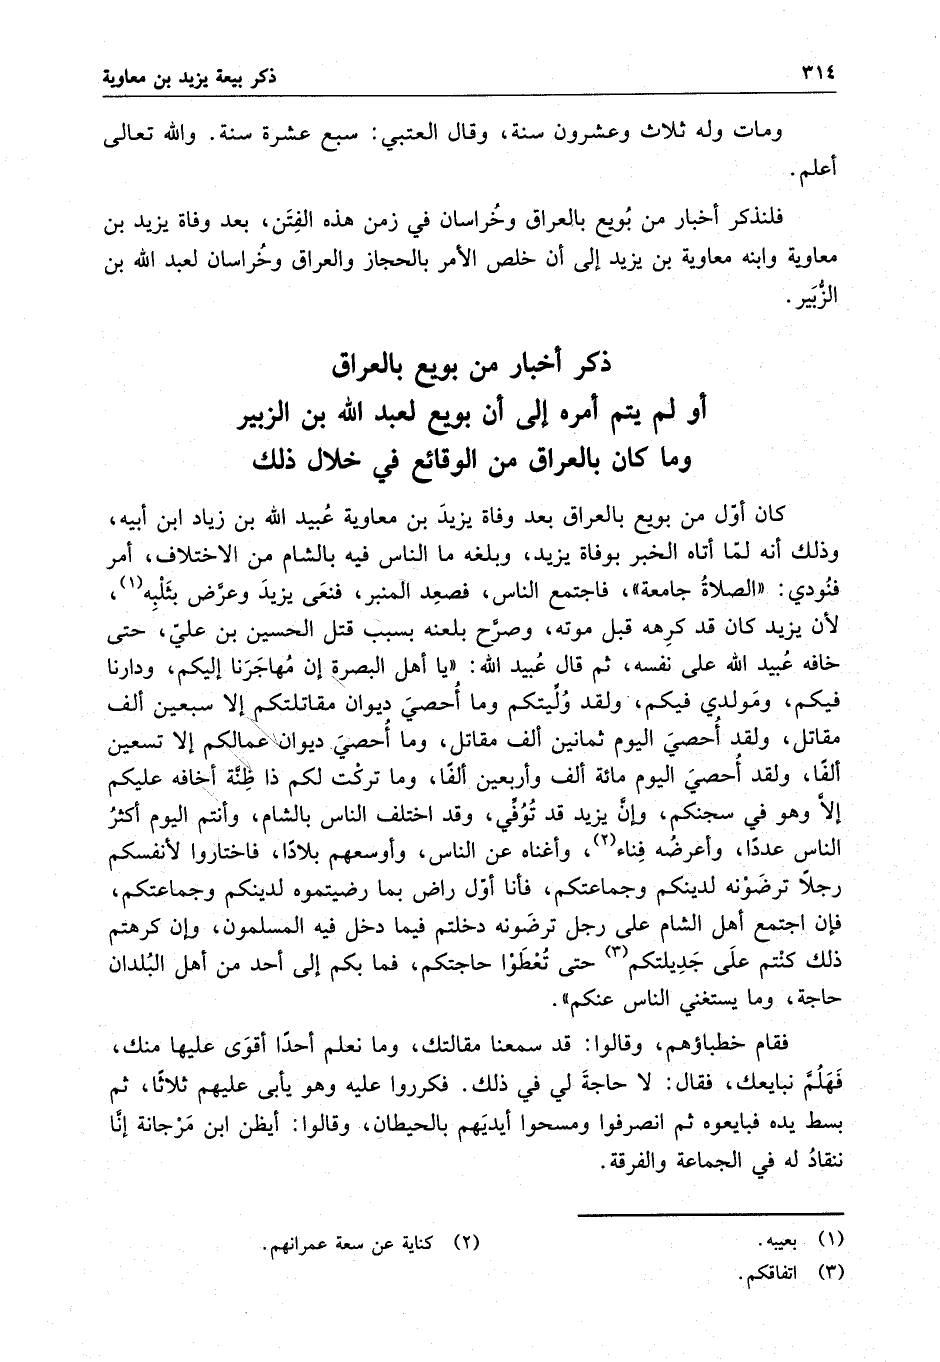 ٣١٤ ذكر بيعة يزيد بن معاوية
ومات وله ثلاث وعشرون سنة، وقال العتبي: سبع عشرة سنة. والله تعالى
أعلم.
فلنذكر أخبار من بُويع بالعراق وخُراسان في زمن هذه الفِتَن، بعد وفاة يزيد بن
معاوية وابنه معاوية بن يزيد إلى أن خلص الأمر بالحجاز والعراق وخُراسان لعبد الله بن
الزُّبَير.
ذكر أخبار من بويع بالعراق
أو لم يتم أمره إلى أن بويع لعبد الله بن الزبير
وما كان بالعراق من الوقائع في خلال ذلك
كان أوّل من بويع بالعراق بعد وفاة يزيدَ بن معاوية عُبيد الله بن زياد ابن أبيه،
وذلك أنه لمّا أتاه الخبر بوفاة يزيد، وبلغه ما الناس فيه بالشام من الاختلاف، أمر
فنُودي: «الصلاةُ جامعة»، فاجتمع الناس، فصعِد المنبر، فنعَى يزيدَ وعرَّض بثَلْبِه(١)،
لأن يزيد كان قد كرِهه قبل موته، وصرَّح بلعنه بسبب قتل الحسين بن عليّ، حتى
خافه عُبيد الله على نفسه، ثم قال عُبيد الله: «يا أهل البصرة إن مُهاجَرَنا إليكم، ودارنا
فيكم، ومَولدي فيكم، ولقد وُلِّيتكم وما أُحصيَ ديوان مقاتلتكم إلا سبعين ألف
مقاتل، ولقد أُحصيَ اليوم ثمانين ألف مقاتل، وما أُحصيَ ديوان عمالكم إلا تسعين
ألفًا، ولقد أُحصيَ اليوم مائة ألف وأربعين ألفًا، وما تركْت لكم ذا ظِنَّة أخافه عليكم
إلاَّ وهو في سجنكم، وإنَّ يزيد قد تُوُفِّي، وقد اختلف الناس بالشام، وأنتم اليوم أكثرُ
الناس عددًا، وأعرضُه فِناء(٢)، وأغناه عن الناس، وأوسعهم بلادًا، فاختاروا لأنفسكم
رجلاً ترضَوْنه لدينكم وجماعتكم، فأنا أوّل راض بما رضيتموه لدينكم وجماعتكم،
فإن اجتمع أهل الشام على رجل ترضَونه دخلتم فيما دخل فيه المسلمون، وإن كرهتم
ذلك كنْتم علَى جَدِيلتكم(٣) حتى تُعْطَوْا حاجتكم، فما بكم إلى أحد من أهل البُلدان
حاجة، وما يستغني الناس عنكم».
فقام خطباؤهم، وقالوا: قد سمعنا مقالتك، وما نعلم أحدًا أقوَى عليها منك،
فَهَلُمَّ نبايعك، فقال: لا حاجةَ لي في ذلك. فكرروا عليه وهو يأبى عليهم ثلاثًا، ثم
بسط يده فبايعوه ثم انصرفوا ومسحوا أيديَهم بالحيطان، وقالوا: أيظن ابن مَرْجانة إنَّا
ننقادُ له في الجماعة والفرقة.
(١) بعيبه. (٢) كناية عن سعة عمرانهم.
(٣) اتفاقكم.